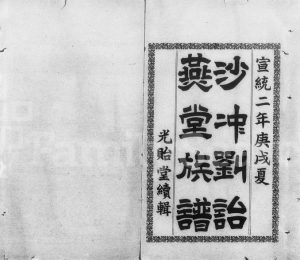 宣統二年庚戌夏
沙冲劉詒
燕堂族譜
光貽堂續輯